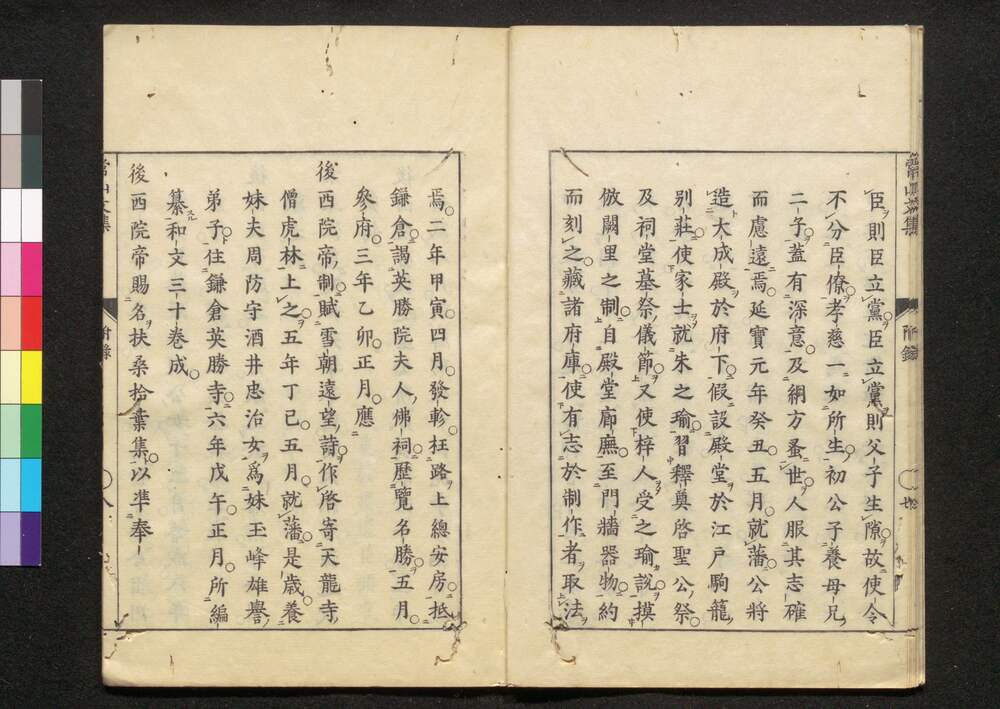 臣則臣立黨臣立黨則父子生隙故使令
不分臣僚孝慈一如所生初公子養母兄
二子蓋有深意及綱方蚤世人服其志確
而慮遠焉延寶元年癸丑五月就藩公將
造大成殿於府下假設殿堂於江戶駒籠
別莊使家士就朱之瑜習釋奠啓聖公祭
及祠堂墓祭儀節又使梓人受之瑜說摸
倣闕里之制自殿堂廊廡至門牆器物約
而刻之藏諸府庫使有志於制作者取法
焉二年甲寅四月發軫枉路上總安房抵
鎌倉謁英勝院夫人佛祠歷覽名勝五月
參府三年乙卯正月應
後西院帝制賦雪朝遠望詩作啓寄天龍寺
僧虎林上之五年丁巳五月就藩是歲養
妹夫周防守酒井忠治女爲妹玉峰雄譽
弟子住鎌倉英勝寺六年戊午正月所編
纂和文三十卷成
後西院帝賜名扶桑拾葉集以準奉
常山文集
附錄
八